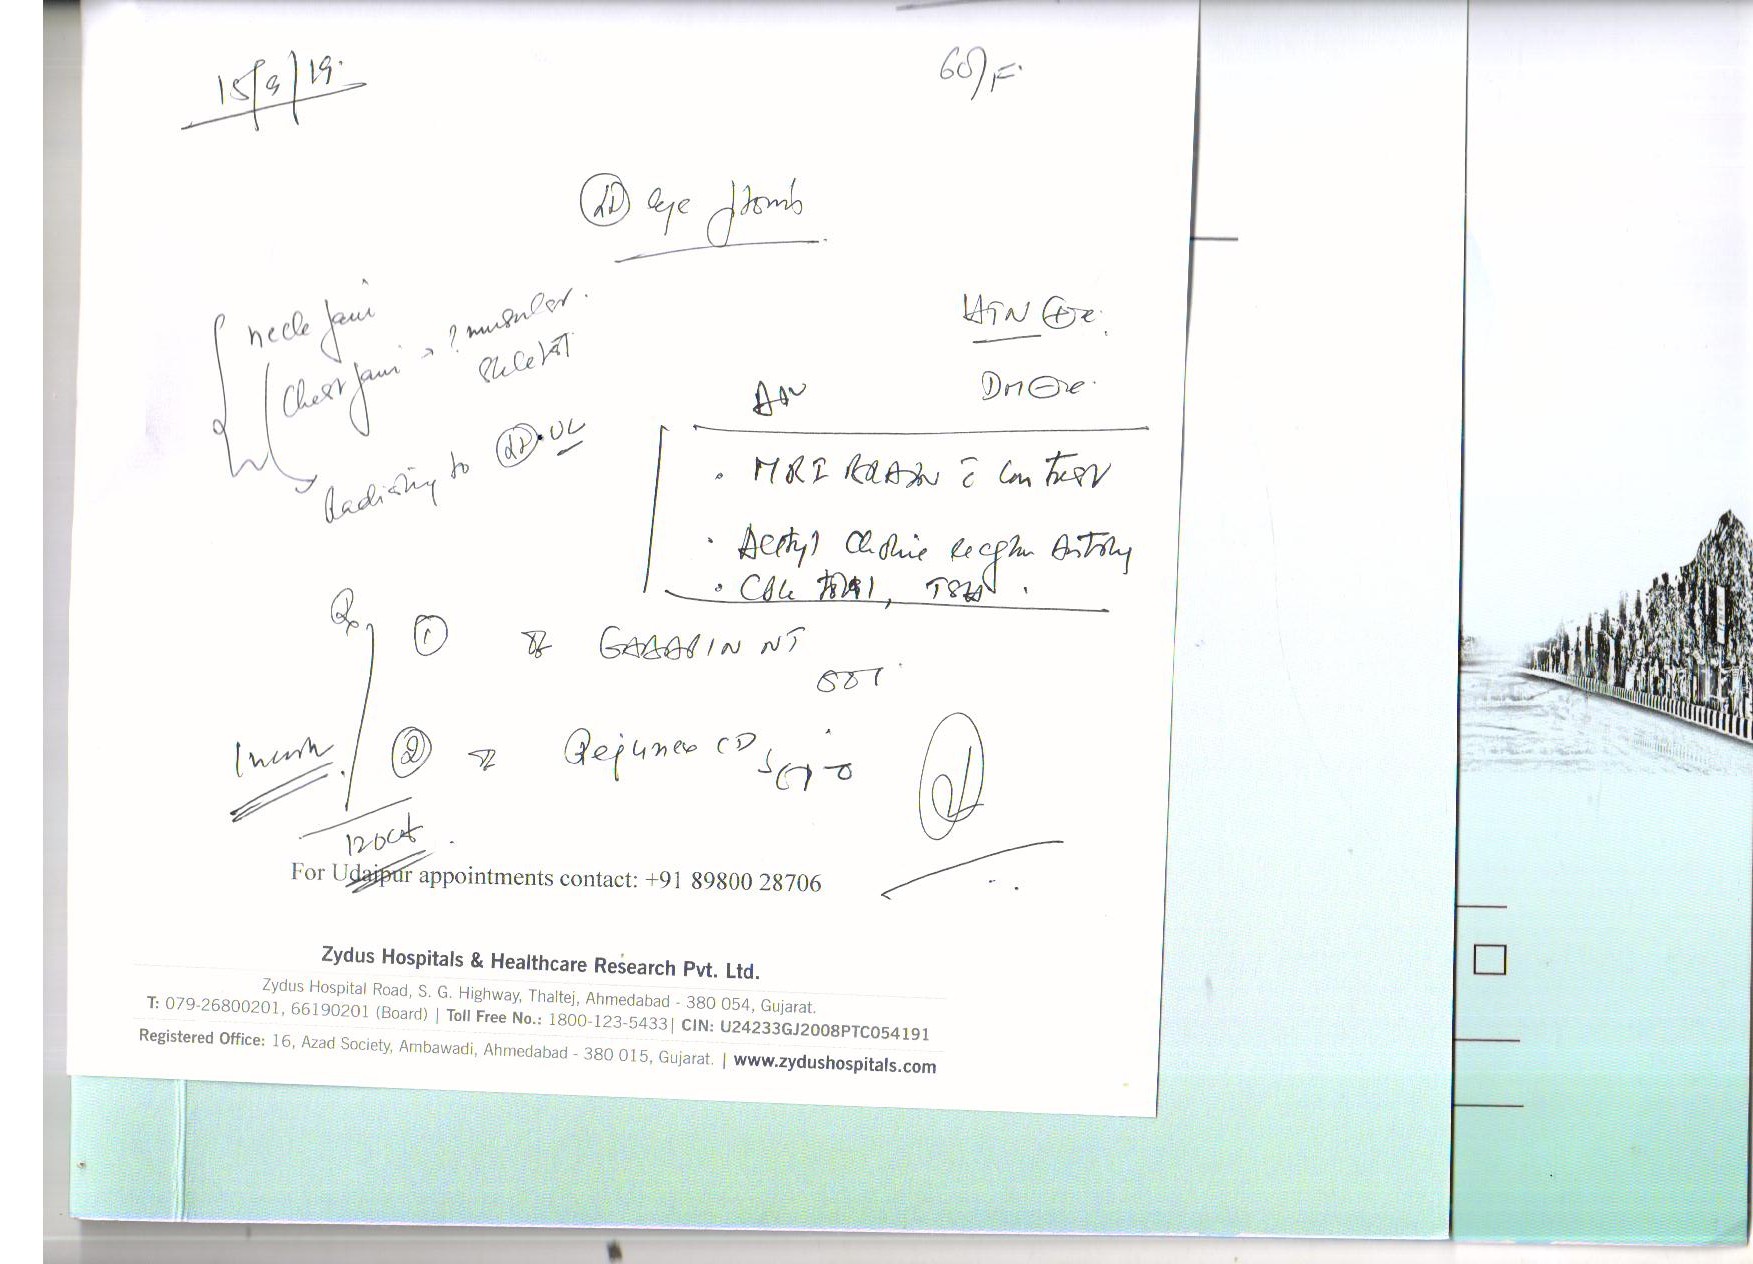 15/9/19.
60/F.
eye ptosis
HTN +ve.
neck pain
Chest pain → ? muscular
skeletal
DM -ve.
Radiating to UL
Adv
. MRI BRAIN c̄ contrast
. Acetyl Choline Receptor Antibody
. CBC, TSH.
Rx
① GABAPIN NT
② Rejunex CD3
1 month
For Udaipur appointments contact: +91 89800 28706
Zydus Hospitals & Healthcare Research Pvt. Ltd.
Zydus Hospital Road, S. G. Highway, Thaltej, Ahmedabad - 380 054, Gujarat.
T: 079-26800201, 66190201 (Board) | Toll Free No.: 1800-123-5433| CIN: U24233GJ2008PTC054191
Registered Office: 16, Azad Society, Ambawadi, Ahmedabad - 380 015, Gujarat. | www.zydushospitals.com